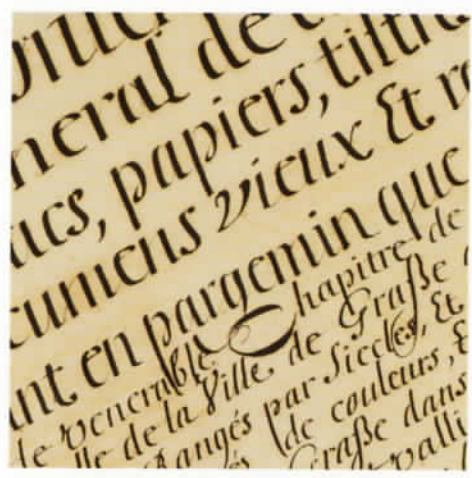 neral de
ucs, papiers, tiltr
cumens vieux Et r
nt en pargemin que
le venerable Chapitre de
lle de la Ville de Graße
Rangés par Siecles, Et
de couleurs, E
Graße dans
valli